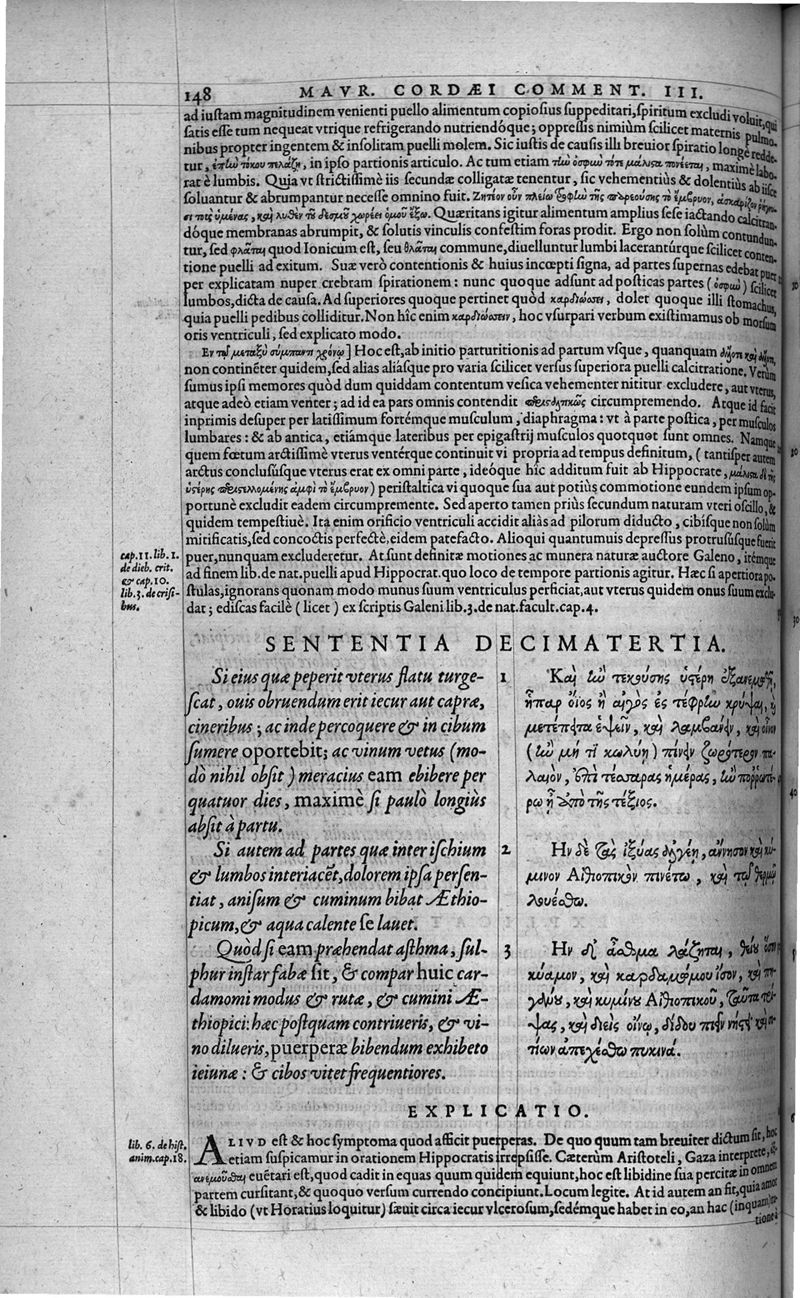 148 MAVR. CORDÆI COMMENT. III.
ad iustam magnitudinem venienti puello alimentum copiosius suppeditari, spiritum excludi voluit, qui
satis esse tum nequeat vtrique refrigerando nutriendóque; oppressis nimiùm scilicet maternis pulmo-
nibus propter ingentem & insolitam puelli molem. Sic iustis de causis illi breuior spiratio longè redde-
tur, in ipso partionis articulo. Ac tum etiam maximè labo-
rat è lumbis. Quia vt strictissimè iis secundæ colligatæ tenentur, sic vehementiùs & dolentiùs ab iisce
soluantur & abrumpantur necesse omnino fuit. Ζητέον οὖν πλείω τροφὴν τῆς τὸ ἔμβρυον,
Quæritans igitur alimentum amplius sese iactando calcitran-
dóque membranas abrumpit, & solutis vinculis confestim foras prodit. Ergo non solùm contundun-
tur, sed φλᾶται quod Ionicum est, seu θλᾶται commune, diuelluntur lumbi lacerantúrque scilicet conten-
tione puelli ad exitum. Suæ verò contentionis & huius incœpti signa, ad partes supernas edebat puer
per explicatam nuper crebram spirationem: nunc quoque adsunt ad posticas partes (ὀσφὺν) scilicet
lumbos, dicta de causa. Ad superiores quoque pertinet quòd καρδιώσσει, dolet quoque illi stomachus,
quia puelli pedibus colliditur. Non hîc enim καρδιώσσειν, hoc vsurpari verbum existimamus ob morsum
oris ventriculi, sed explicato modo.
Εν τῷ μεταξὺ σύμπαντι χρόνῳ] Hoc est, ab initio parturitionis ad partum vsque, quanquam
non continẽter quidem, sed alias aliásque pro varia scilicet versus superiora puelli calcitratione. Verùm
sumus ipsi memores quòd dum quiddam contentum vesica vehementer nititur excludere, aut vterus,
atque adeò etiam venter; ad id ea pars omnis contendit circumpremendo. Atque id facit
inprimis desuper per latissimum fortémque musculum, diaphragma: vt à parte postica, per musculos
lumbares: & ab antica, etiámque lateribus per epigastrij musculos quotquot sunt omnes. Namque
quem fœtum arctissimè vterus ventérque continuit vi propria ad tempus definitum, (tantisper autem
arctus conclusúsque vterus erat ex omni parte, ideóque hîc additum fuit ab Hippocrate, μάλιστα δὲ τῆς
ὑστέρης περιστελλομένης ἀμφὶ τὸ ἔμβρυον) peristaltica vi quoque sua aut potiùs commotione eundem ipsum op-
portunè excludit eadem circumpremente. Sed aperto tamen priùs secundum naturam vteri oscillo, &
quidem tempestiuè. Ita enim orificio ventriculi accidit aliàs ad pilorum diducto, cibísque non solùm
mitificatis, sed concoctis perfectè, eidem patefacto. Alioqui quantumuis depressus protrusúsque fuerit
cap. 11. lib. 1.
de dieb. crit.
& cap. 10.
lib. 3. de crisi-
bus.
puer, nunquam excluderetur. At sunt definitæ motiones ac munera naturæ auctore Galeno, itémque
ad finem lib. de nat. puelli apud Hippocrat. quo loco de tempore partionis agitur. Hæc si apertiora po-
stulas, ignorans quonam modo munus suum ventriculus perficiat, aut vterus quidem onus suum exclu-
dat; ediscas facilè (licet) ex scriptis Galeni lib. 3. de nat. facult. cap. 4.
SENTENTIA DECIMATERTIA.
Si eius quæ peperit vterus flatu turge-
scat, ouis obruendum erit iecur aut capræ,
cineribus; ac inde percoquere & in cibum
sumere oportebit; ac vinum vetus (mo-
dò nihil obsit) meracius eam ebibere per
quatuor dies, maximè si paulò longiùs
absit à partu.
Si autem ad partes quæ inter ischium
& lumbos interiacẽt, dolorem ipsa persen-
tiat, anisum & cuminum bibat Æthio-
picum, & aqua calente se lauet.
Quòd si eam præhendat asthma, sul-
phur instar fabæ sit, & compar huic car-
damomi modus & rutæ, & cumini Æ-
thiopici: hæc postquam contriueris, & vi-
no dilueris, puerperæ bibendum exhibeto
ieiunæ: & cibos vitet frequentiores.
1 Καὶ ἢν τεκούσης ὑστέρη ἐξανεμωθῇ,
ἧπαρ ὄϊος ἢ αἰγὸς ἐς τέφρην κρύψαι,
μετέπειτα ἑψεῖν, καὶ λαμβάνειν, καὶ οἶνον
(ἢν μή τι κωλύῃ) πίνειν ζωρότερον πα-
λαιὸν, ἐπὶ τέσσαρας ἡμέρας, ἢν πορρωτέ-
ρω ᾖ ἀπὸ τῆς τέξιος.
2 Ην δὲ τὰς ἰξύας ἀλγέῃ, ἄννησον καὶ κύ-
μινον Αἰθιοπικὸν πινέτω, καὶ τῷ θερμῷ
λουέσθω.
3 Ην δ' ἄσθμα λάζηται, θείου ὅσον
κύαμον, καὶ καρδαμώμου ἴσον, καὶ πη-
γάνου, καὶ κυμίνου Αἰθιοπικοῦ, ταῦτα τρί-
ψας, καὶ διεὶς οἴνῳ, δίδου πιεῖν νήστει καὶ
σιτίων ἀπεχέσθω πυκινά.
EXPLICATIO.
lib. 6. de hist.
anim. cap. 18.
ALIVD est & hoc symptoma quod afficit puerperas. De quo quum tam breuiter dictum sit, hoc
etiam suspicamur in orationem Hippocratis irrepsisse. Cæterùm Aristoteli, Gaza interprete,
ἀνεμοῦσθαι euẽtari est, quod cadit in equas quum quidem equiunt, hoc est libidine sua percitæ in omnem
partem cursitant, & quoquo versum currendo concipiunt. Locum legite. At id autem an fit, quia amor
& libido (vt Horatius loquitur) sæuit circa iecur vlcerosum, sedémque habet in eo, an hac (inquam)
tione